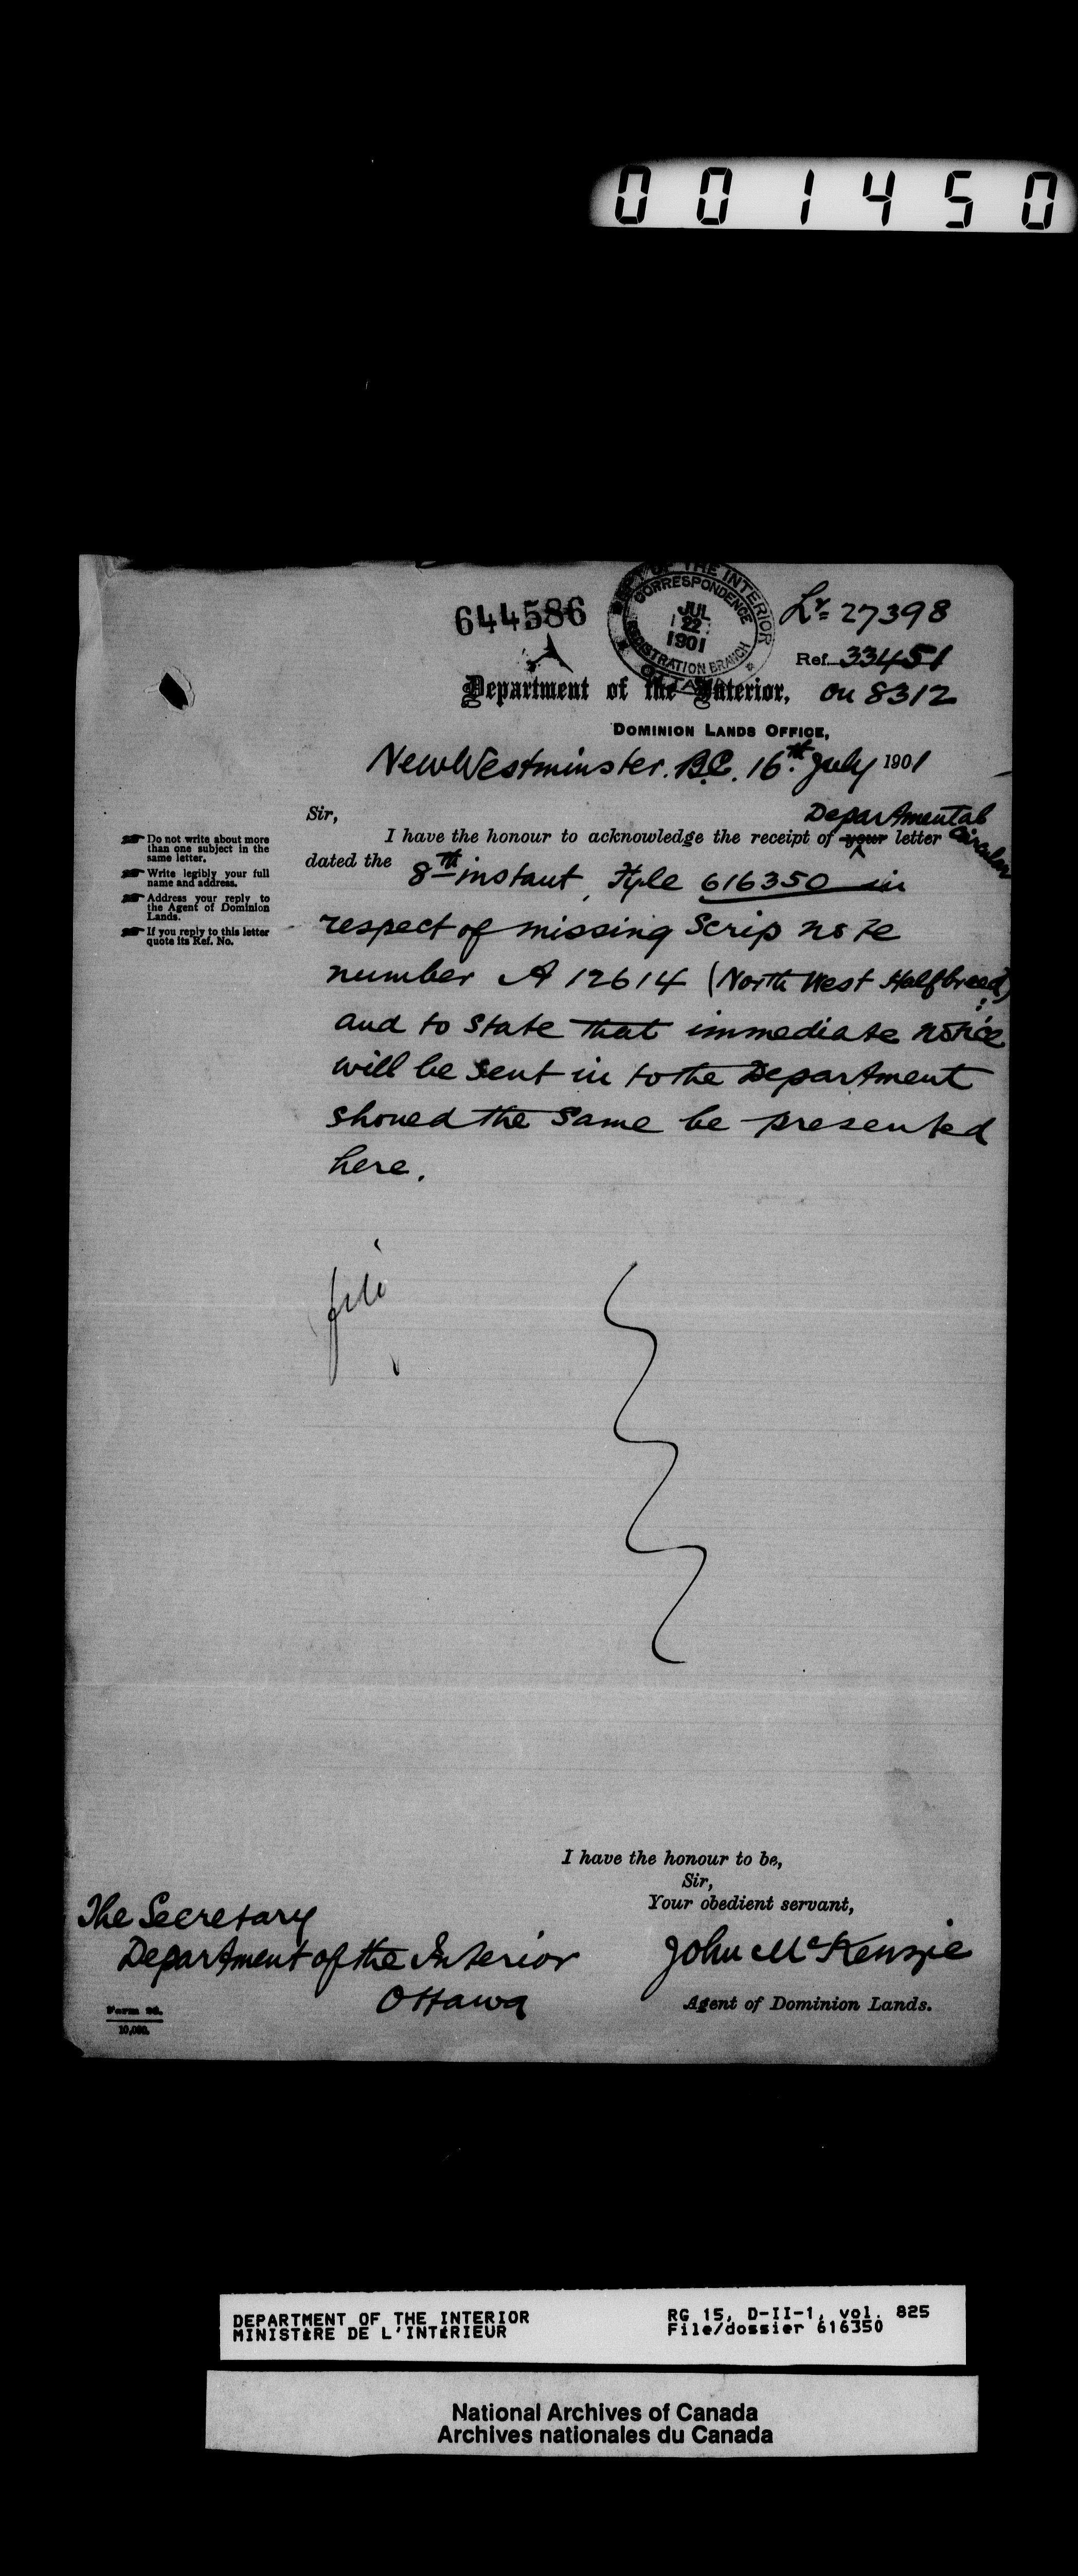 001450
644586
DEPT OF THE INTERIOR
CORRESPONDENCE
JUL
22
1901
REGISTRATION BRANCH
OTTAWA
Lr= 27398
Ref. 33451
on 8312
Department of the Interior,
DOMINION LANDS OFFICE,
New Westminster. B.C. 16th July 1901
Sir,
Departmental
I have the honour to acknowledge the receipt of your letter Circular
dated the 8th instant, Fyle 616350 in
respect of missing Scrip note
number A 12614 (North West Halfbreed)
and to state that immediate notice
will be sent in to the Department
shoued the same be presented
here.
☛ Do not write about more
than one subject in the
same letter.
☛ Write legibly your full
name and address.
☛ Address your reply to
the Agent of Dominion
Lands.
☛ If you reply to this letter
quote its Ref. No.
file
I have the honour to be,
Sir,
Your obedient servant,
John McKenzie
Agent of Dominion Lands.
The Secretary
Department of the Interior
Ottawa
Form
10,000.
DEPARTMENT OF THE INTERIOR
MINISTÈRE DE L'INTÉRIEUR
RG 15, D-II-1, vol. 825
File/dossier 616350
National Archives of Canada
Archives nationales du Canada